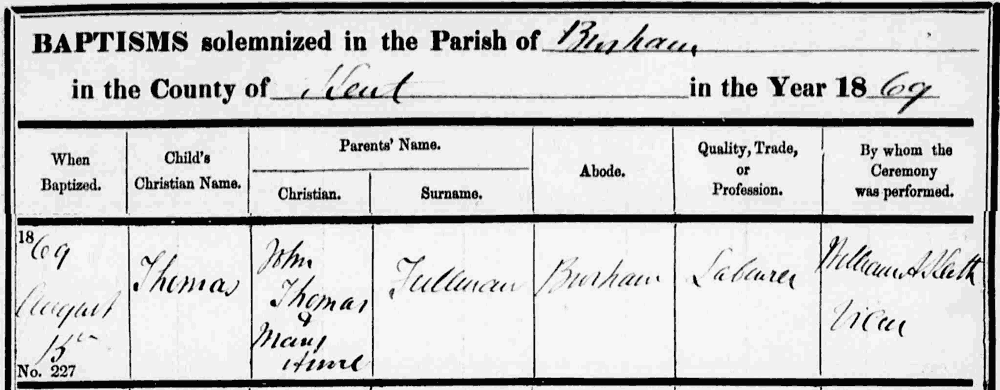 BAPTISMS solemnized in the Parish of Burham
in the County of Kent in the Year 1869
When Baptized.
Child's Christian Name.
Parents' Name.
Christian.
Surname.
Abode.
Quality, Trade, or Profession.
By whom the Ceremony was performed.
1869
August
15th
No. 227
Thomas
John
Thomas
&
Mary
Anne
Fullman
Burham
Labourer
William A
Vicar